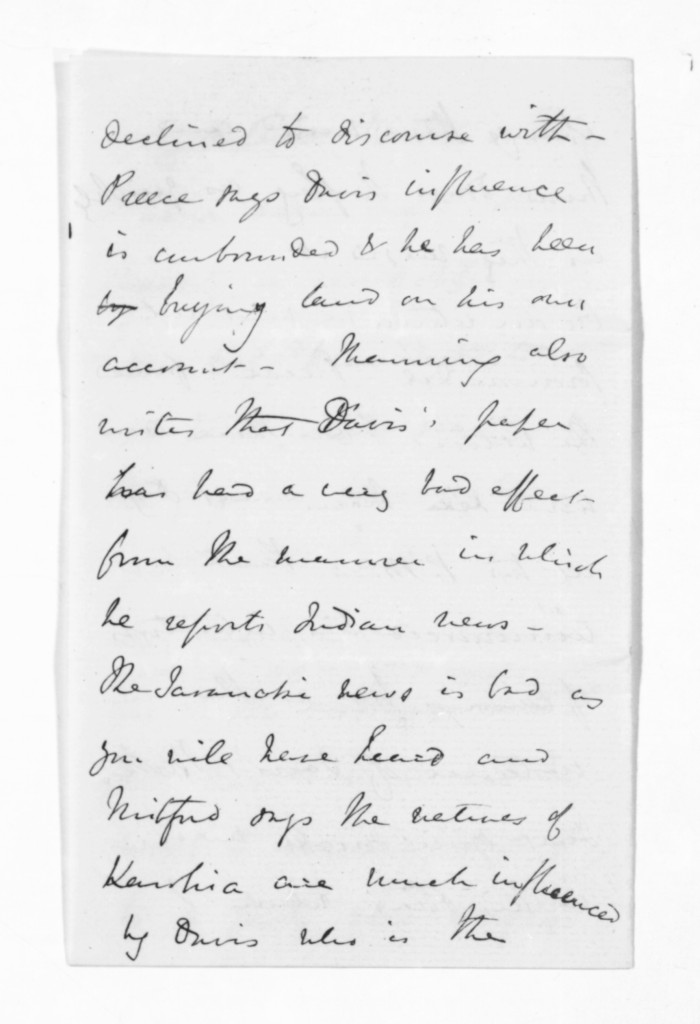 declined to discourse with –
Preece says Davis influence
is unbounded & he has been
by buying land on his own
account – Manning also
writes that Davis's paper
has had a very bad effect
from the manner in which
he reports Indian news –
The Taranaki news is bad as
you will have heard and
Mitford says the natives of
are much influenced
by Davis who is the